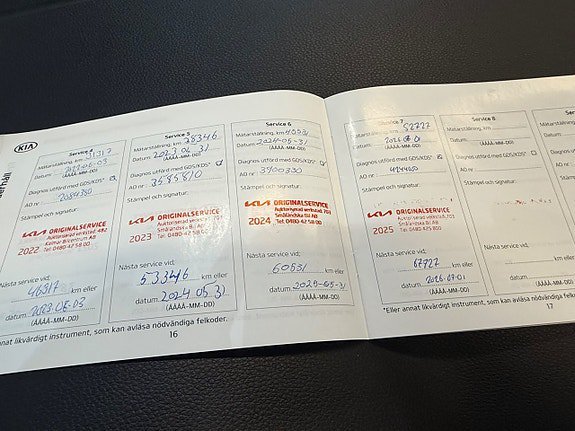 KIA
Service 4
Mätarställning, km 31317
Datum:
(ÅÅÅÅ-MM-DD)
Diagnos utförd med GDS/KDS*
AO nr
Stämpel och signatur:
KIA ORIGINALSERVICE
Auktoriserad verkstad: 482
Kalmar Bilcentrum AB
2022 Tel: 0480 42 58 00
Nästa service vid:
46317 km eller
datum 2023-06-03
(ÅÅÅÅ-MM-DD)
Service 5
Mätarställning, km 38346
Datum:
(ÅÅÅÅ-MM-DD)
Diagnos utförd med GDS/KDS*
AO nr 3585810
Stämpel och signatur:
KIA ORIGINALSERVICE
Auktoriserad verkstad: 701
Småländska Bil AB
2023 Tel: 0480 42 58 00
Nästa service vid:
53346 km eller
datum 2024 05 31
(ÅÅÅÅ-MM-DD)
Service 6
Mätarställning, km 45531
Datum: 2024-05-31
(ÅÅÅÅ-MM-DD)
Diagnos utförd med GDS/KDS*
AO nr 3900330
Stämpel och signatur:
KIA ORIGINALSERVICE
Auktoriserad verkstad: 701
Småländska Bil AB
2024 Tel: 0480 42 58 00
Nästa service vid:
60531 km eller
datum 2025-05-31
(ÅÅÅÅ-MM-DD)
annat likvärdigt instrument, som kan avläsa nödvändiga felkoder.
16
Service 7
Mätarställning, km 52727
Datum:
(ÅÅÅÅ-MM-DD)
Diagnos utförd med GDS/KDS*
AO nr
Stämpel och signatur:
KIA ORIGINALSERVICE
Auktoriserad verkstad: 701
Småländska Bil AB
2025 Tel: 0480 42 58 00
Nästa service vid:
67727 km eller
datum 2026-07-01
(ÅÅÅÅ-MM-DD)
Service 8
Mätarställning, km
Datum:
(ÅÅÅÅ-MM-DD)
Diagnos utförd med GDS/KDS*
AO nr
Stämpel och signatur:
Nästa service vid:
km eller
datum
(ÅÅÅÅ-MM-DD)
*Eller annat likvärdigt instrument, som kan avläsa nödvändiga
17